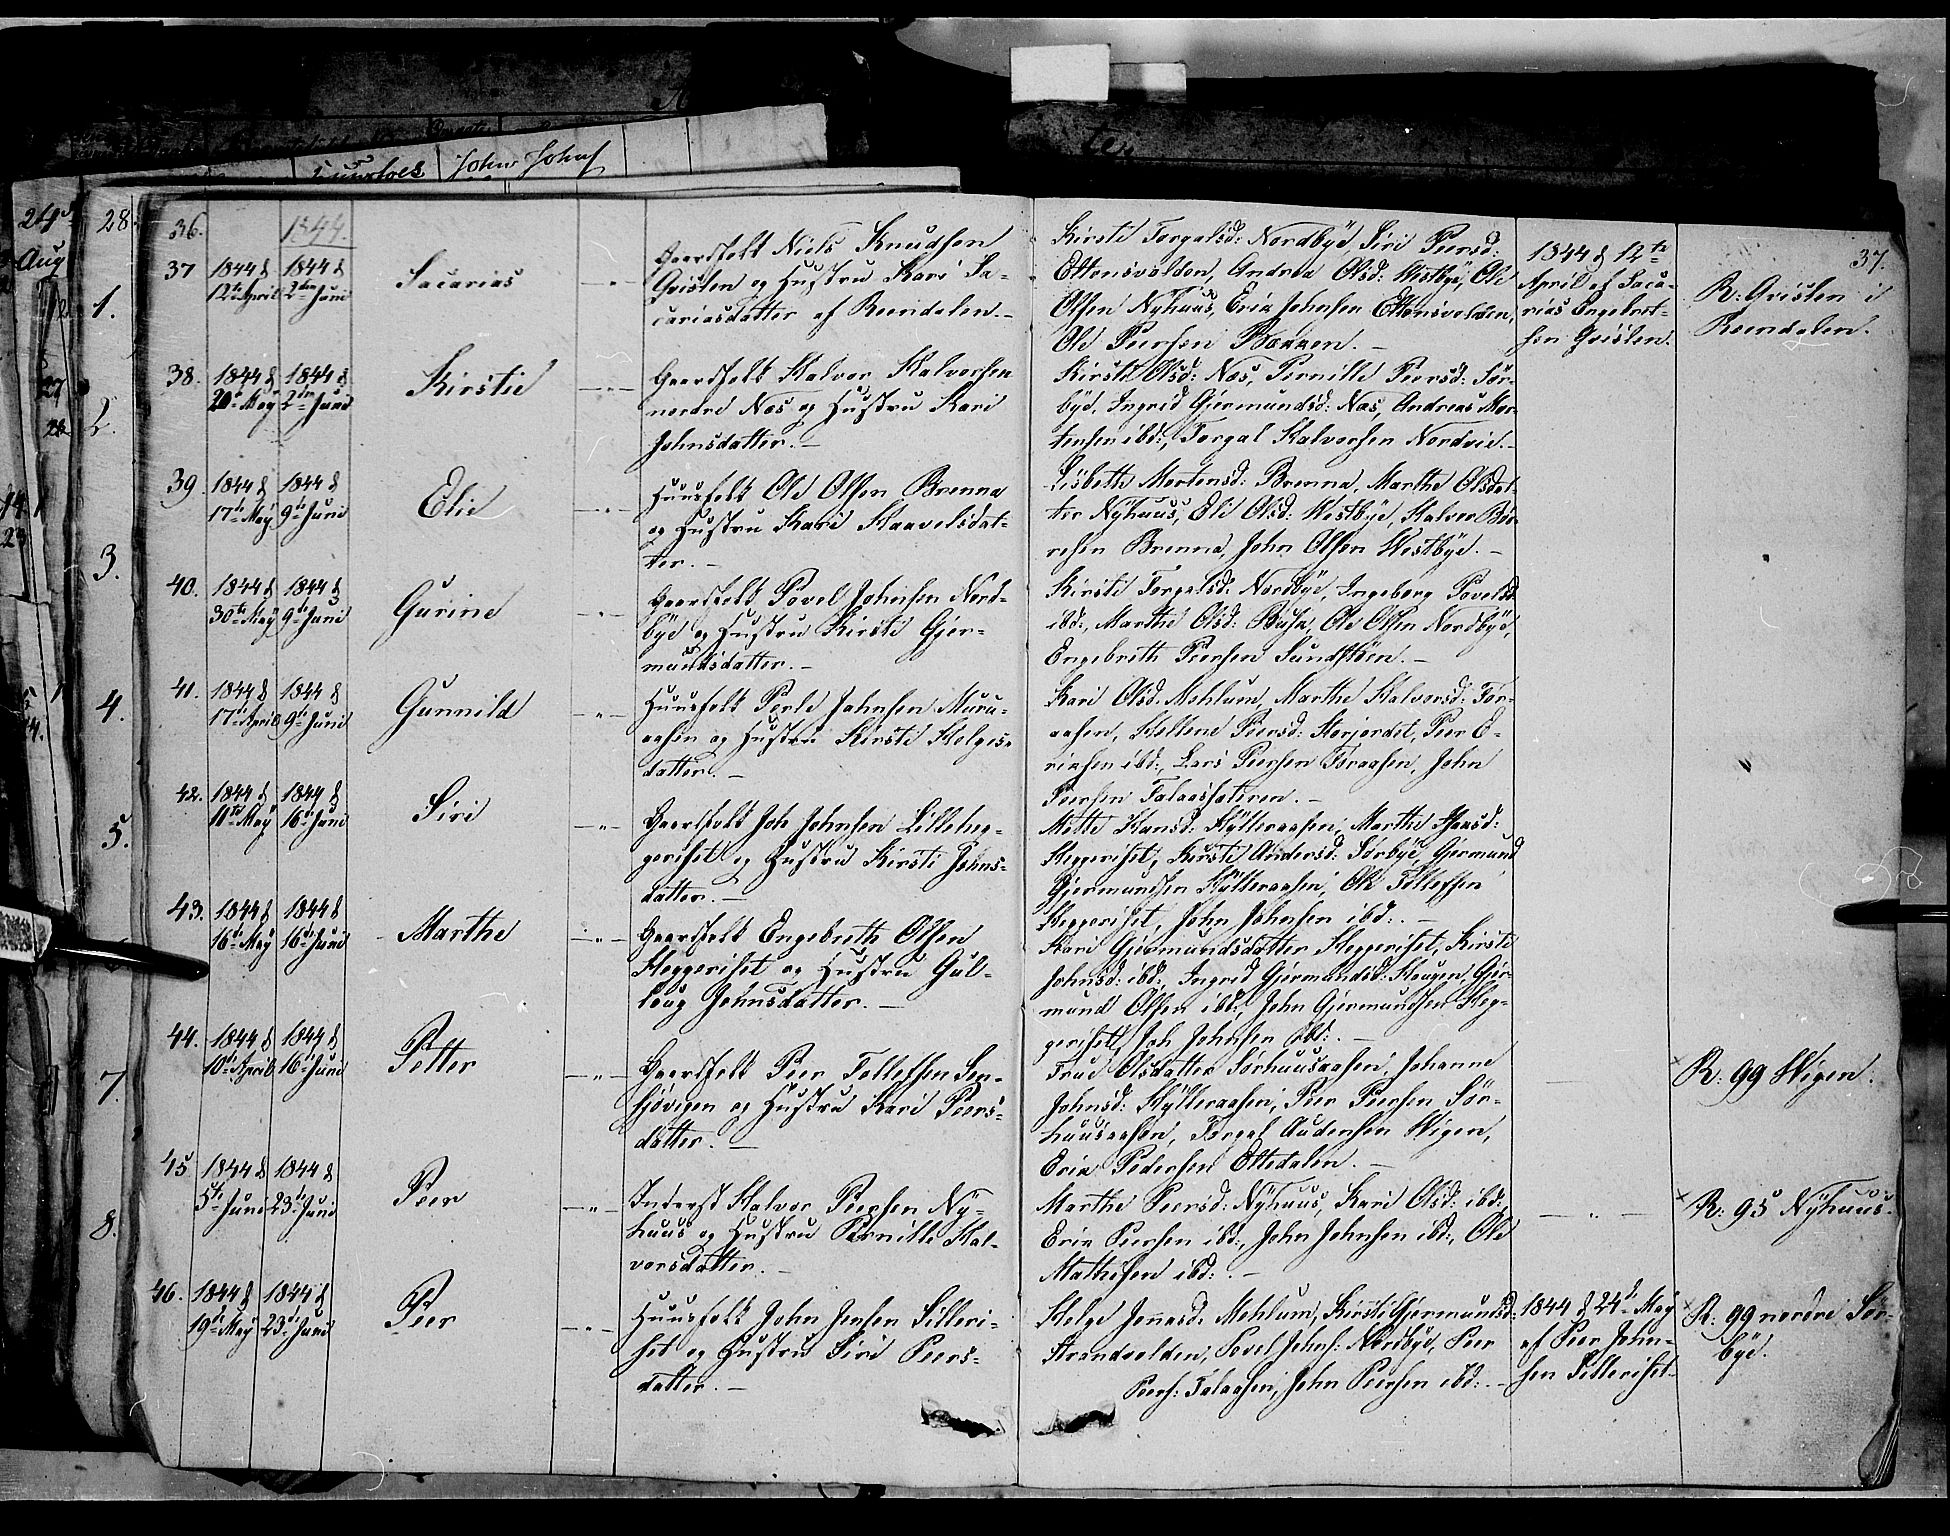 36.
1844.
37.
37 1844 d 12te April 1844 d 2den Juni
Sacarias
Gaardfolk Niels Knudsen
Gvisten og Hustru Kari Sa-
cariasdatter af Reendalen.-
Kirsti Torgalsd: Nordbÿe, Siri Peersd:
Ottensvolden, Andrea Olsd: Westbÿe, Ole
Olsen Nÿhuus, Erik Johnsen Ottensvolden,
Ole Peersen Bakken. -
1844 d 12te
April af Saca-
rias Engebret-
sen Gvisten.
R: Gvisten i
Reendalen.
38. 1844 d 20de May 1844 d 2den Juni
Kirstie
Gaardfolk Halvor Halvorsen
nordre Næs og Hustru Kari
Johnsdatter. -
Kirsti Olsd: Næs, Pernille Peersd: Sør-
bÿe, Ingrid Gjermundsd: Næs, Andreas Mor-
tensen ibd:, Torgal Halvorsen Nordvie.-
39. 1844 d 17de May 1844 d 9de Juni
Elie
Huusfolk Ole Olsen Brenna
og Hustru Kari Haavelsdat-
ter. -
Lisbeth Mortensd: Brenna, Marthe Olsdat-
ter Nÿhuus, Eli Olsd: Westbÿe, Halvor Bør-
resen Brenna, John Olsen Westbÿe. -
40. 1844 d 30te May 1844 d 9de Juni
Gurine
Gaardfolk Povel Johnsen Nord-
bÿe og Hustru Kirsti Gjer-
mundsdatter. -
Kirsti Torgalsd: Nordbÿe, Ingeborg Povelsd:
ibd:, Marthe Olsd: Ole Olsen Nordbÿe,
Engebreth Peersen Sundfløen. -
41. 1844 d 17de April 1844 d 9de Juni
Gunnild
Huusfolk Perle Johnsen Muru-
aasen og Hustru Kirsti Helges-
datter. -
Kari Olsd. Mehlum, Marthe Halvorsd: For-
aasen, Hellene Peersd: Storjordet, Peer E-
riksen ibd:, Lars Peersen Foraasen, John
Peersen Falaassæteren. -
42. 1844 d 11te May 1844 d 16de Juni
Siri
Gaardfolk Joh Johnsen Lilleheg-
geriset og Hustru Kirsti Johns-
datter. -
Mette Hansd: Hÿlleraasen, Marthe
Heggeriset, Kirsti Andersd: Sørbÿe, Gjermund
Gjermundsen Hÿlleraasen, Ole Tollefsen
Heggeriset, John Johnsen ibd:. -
43. 1844 d 16de May 1844 d 16de Juni
Marthe
Gaardfolk Engebreth Olsen
Heggeriset og Hustru Gul-
loug Johnsdatter. -
Kari Gjermundsdatter Heggeriset, Kirsti
Johnsd: ibd:, Ingrid Gjermundsd: Haugen, Gjer-
mund Olsen ibd:, John Gjermundsen Heg-
geriset, Joh Johnsen ibd:. -
44. 1844 d 10de April 1844 d 16de Juni
Petter
Gaardfolk Peer Tollefsen Sen-
sjøvigen og Hustru Kari Peers-
datter. -
True Olsdatter Sørhuusaasen, Johanne
Johnsd: Hÿlleraasen, Peer Peersen Sør-
huusaasen, Torgal Audensen Wigen,
Erik Pedersen Ottedalen. -
R: 99 Wigen.
45. 1844 d 5te Juni 1844 d 23de Juni
Peer
Inderst Halvor Peersen Nÿ-
huus og Hustru Pernille Hal-
vorsdatter. -
Marthe Peersd: Nÿhuus, Kari Olsd: ibd:,
Erik Peersen ibd:, John Johnsen ibd:, Ole
Mathisen ibd: -
R: 95 Nÿhuus.
46. 1844 d 19de May 1844 d 23de Juni
Peer
Huusfolk John Jensen Silleri-
set og Hustru Siri Peers-
datter. -
Helge Jonasd. Mehlum, Kirsti Gjermundsd:
Strandvolden, Povel Johns: Nordbÿe, Peer
Peers: Falaasen, John Peersen ibd: -
1844 d 24de May
af Peer John-
sen Silleriset-
R: 99 nordre Sør-
bÿe.
24de
Aug
28.
1.
2.
3.
4.
5.
7.
8.
John Johns